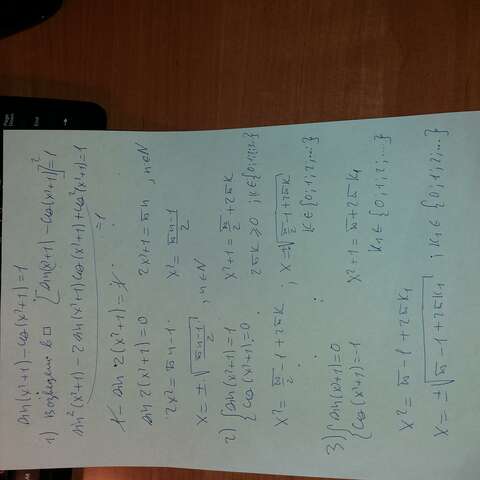 sin(x²+1)-cos(x²+1)=1
1) Возведем в □ [sin(x²+1) - cos(x²+1)]²=1
sin²(x²+1) - 2 sin(x²+1)cos(x²+1)+cos²(x²+1)=1
=1
1 - sin 2(x²+1)=1
sin 2(x²+1)=0 2x²+1=πn, n∈N
2x²=πn-1. x²=πn-1/2
x=±√(πn-1/2), n∈N
2) {sin(x²+1)=1 x²+1=π/2+2πk
{cos(x²+1)=0 2πk≥0; k∈{0;1;2;...}
x²=π/2-1+2πk ; x=±√(π/2-1+2πk)
k∈{0;1;2;...}
3) {sin(x²+1)=0 x²+1=π+2πk₁
{cos(x²+1)=1 k₁∈{0;1;2;...}
x²=π-1+2πk₁
x=±√(π-1+2πk₁) ; k₁∈{0;1;2;...}
Page
End